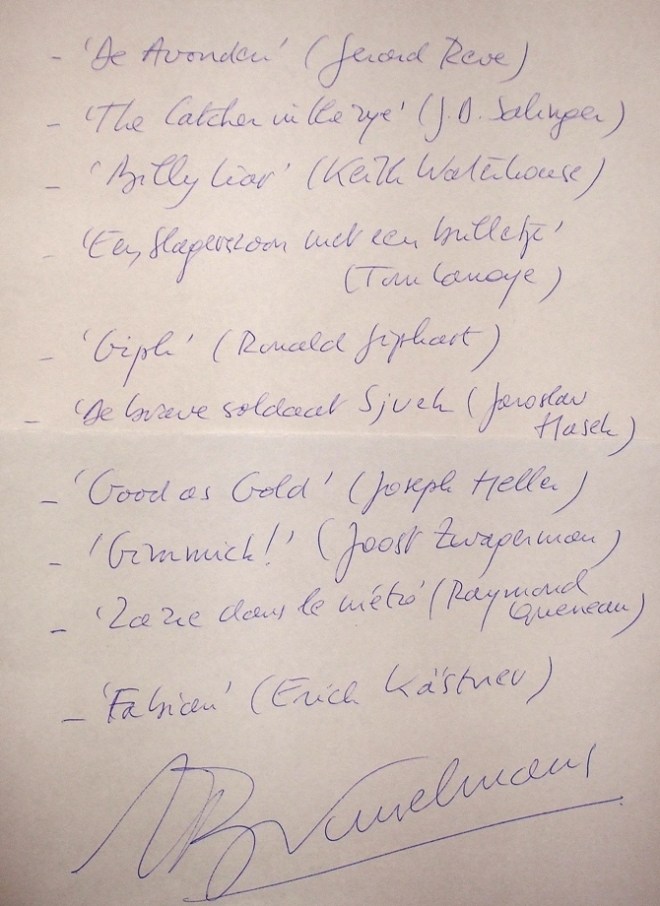 - 'De Avonden' (Gerard Reve)
- 'The Catcher in the rye' (J.D. Salinger)
- 'Billy Liar' (Keith Waterhouse)
- 'Een slagerszoon met een brilletje'
(Tom Lanoye)
- 'Giph' (Ronald Giphart)
- 'De brave soldaat Sjvek (Jaroslav
Hasek)
- 'Good as Gold' (Joseph Heller)
- 'Gimmick!' (Joost Zwagerman)
- 'Zazie dans le métro' (Raymond
Queneau)
- 'Fabian' (Erich Kästner)
Brusselmans